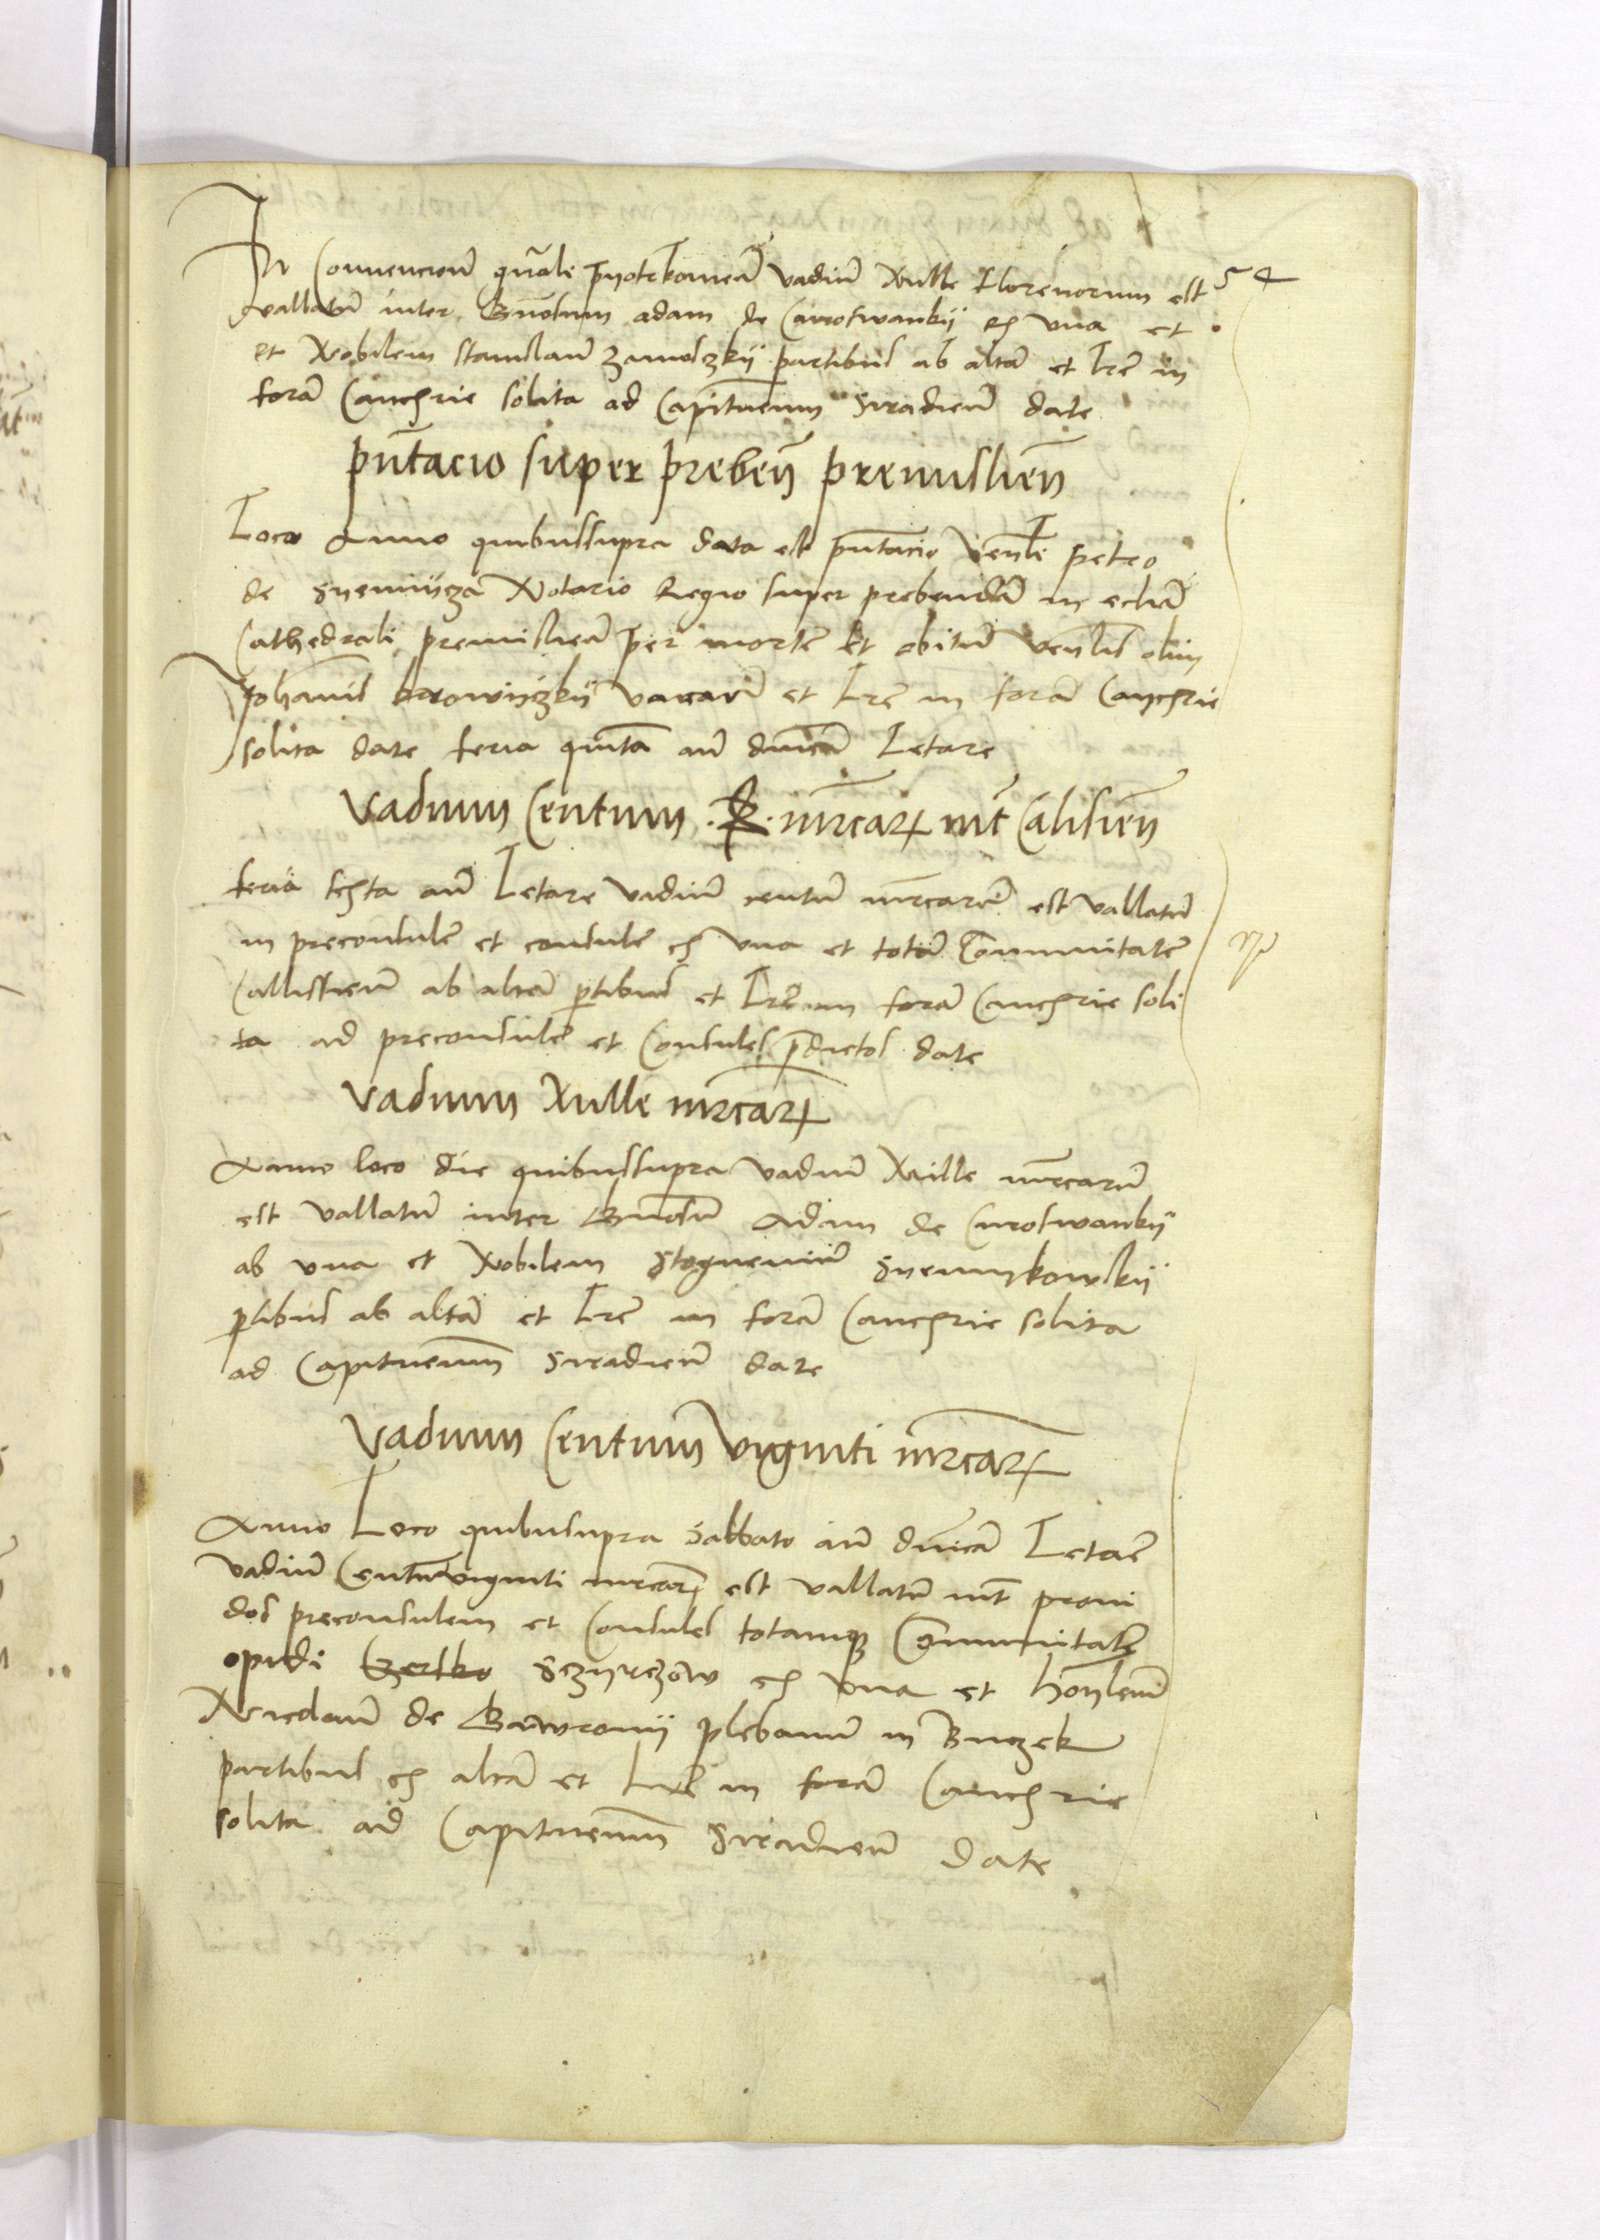 54
In Convencione gnrali Pyotrkoviens vadium Mille Florenorum est
vallatum inter Gnosum adam de Curoswankij ex una et
et Nobilem stanislaum zamoszkij partibus ab altera et lre in
forma Cancrie solita ad Capitaneum Siradiens date
pntacio super preben premislien
Loco Anno quibussupra data est pntacio Venli petro
de Notario Regio super prebendam in eclia
Cathedrali premislien per mortem et obitum Venlis olim
Johannis vacan et lre in forma Cancrie
solita date feria quinta an dnicam Letare
Vadium Centum mrcar int Calisien
feria sexta an Letare vadium centum mrcarum est vallatum
in preconsulem et consules ex una et totam Communitatem
Callissien ab altera partibus et lre in forma Cancrie soli
ta ad preconsulem et Consules predictos date
Vadium Mille mrcar
Anno loco die quibussupra vadium Mille mrcarum
est vallatum inter Gnosum Adam de Curoswankij
ab una et Nobilem
partibus ab altera et lre in forma Cancrie solita
ad Capitaneum Siradien date
Vadium Centum viginti mrcar
Anno Loco quibusupra Sabbato an dnicam Letare
vadium Centum viginti mrcar est vallatum int provi
dos preconsulem et Consules totamque Communitatem
opidi Sczyrczow ex una et honlem
Nicolaum de plebanum in Buczek
partibus ex altera et lre in forma Cancrie
solita ad Capitaneum Siradien date